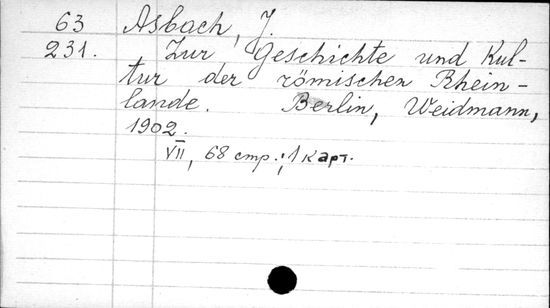 63 Asbach, J.
231. Zur Geschichte und Kul-
tur der römischen Rhein-
lande. Berlin, Weidmann,
1902.
VII, 68 стр.; 1 карт.